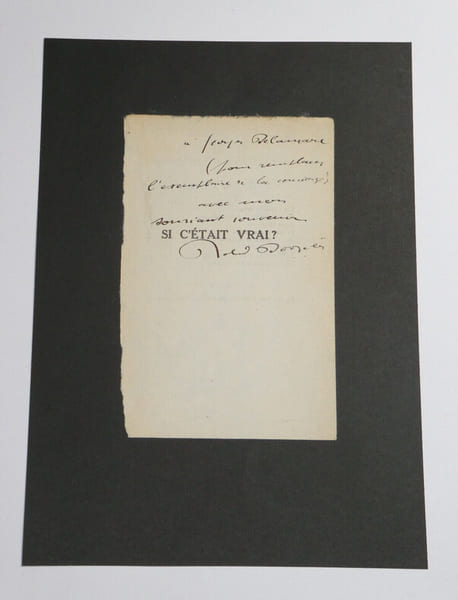 à Georges Delamare
(pour remplacer
l'exemplaire de la concierge)
avec mon
souriant souvenir
SI C'ÉTAIT VRAI?
Roland Dorgelès